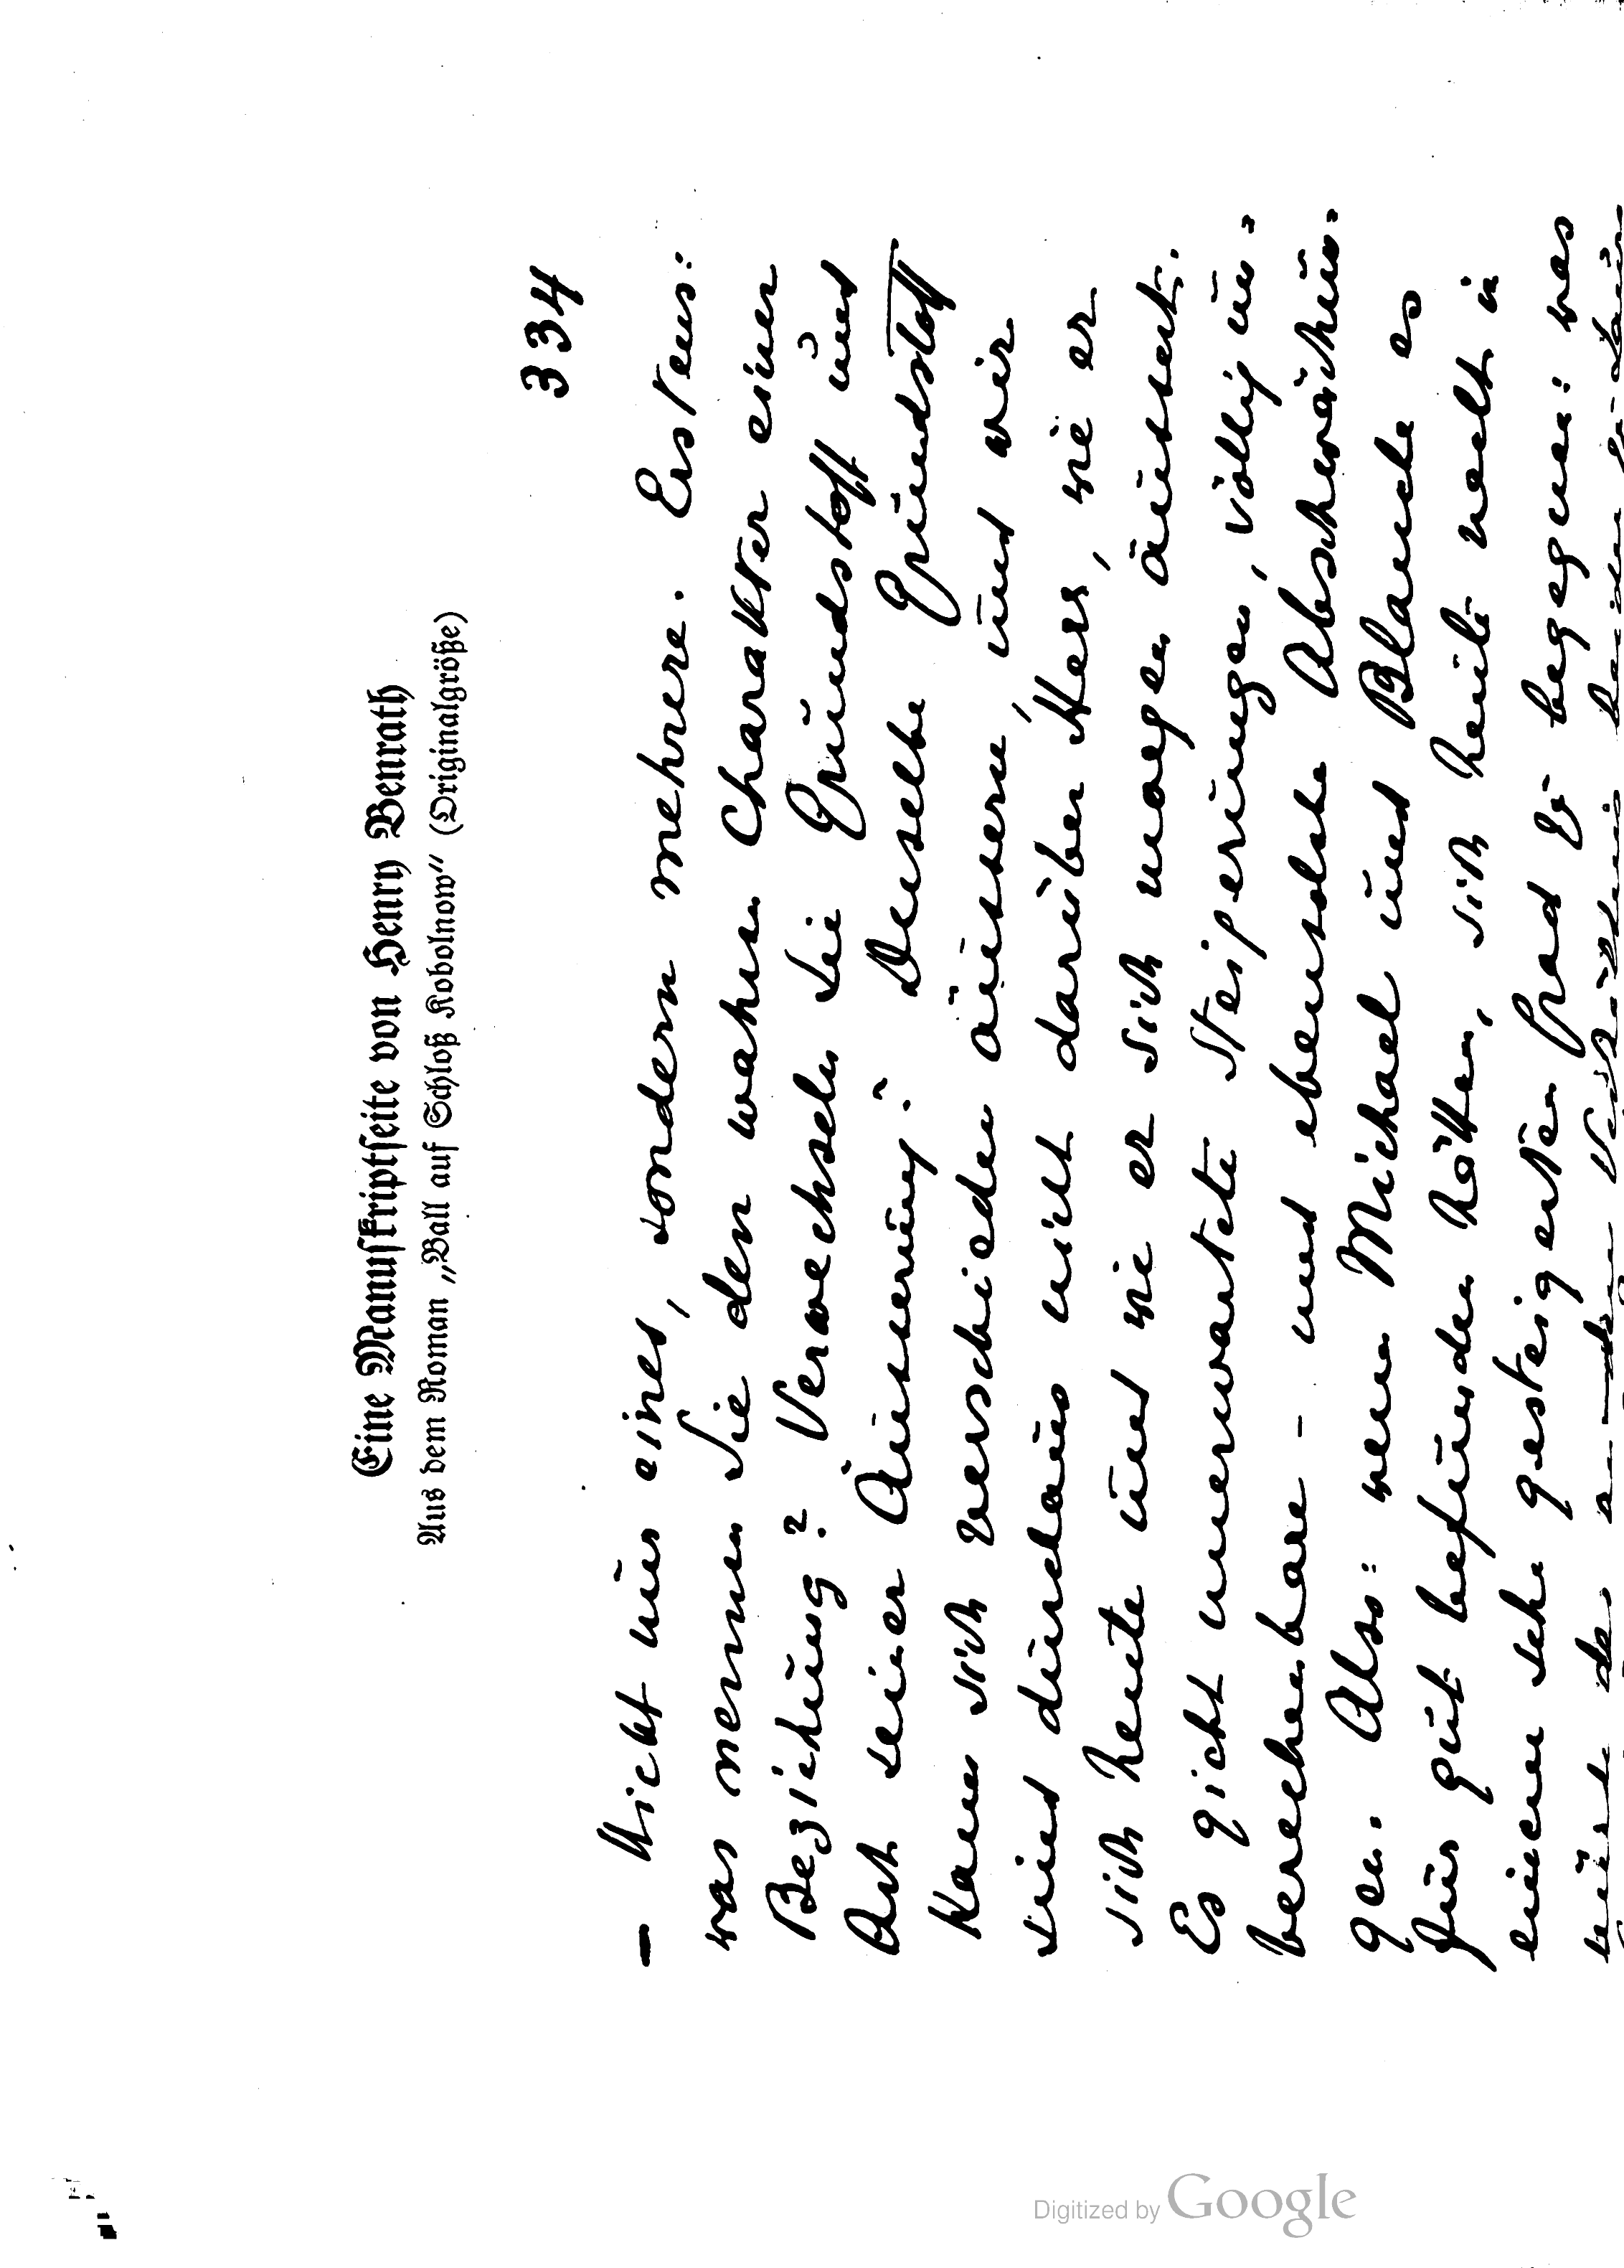 Eine Manuskriptseite von Henry Benrath
Aus dem Roman „Ball auf Schloß Kobolnow“ (Originalgröße)
334
— Nicht nur eines, sondern mehrere. Erstens:
was nennen Sie den wahren Charakter einer
Beziehung? Verwechseln Sie Grundstoff und
Art seiner Äusserung? Derselbe Grundstoff
kann sich verschieden äussern, und wir
sind durchaus nicht darüber Herr, wie er
sich heute und wie er sich morgen äussert.
Es gibt unerwartete Steigerungen, völlig un=
berechenbare – und ebensolche Abschwächun=
gen. Also: wenn Michael und Blanche es
für gut befunden hätten, sich heute nacht in
einem sehr gesteigerten Grad zu begegnen: was
Digitized by Google